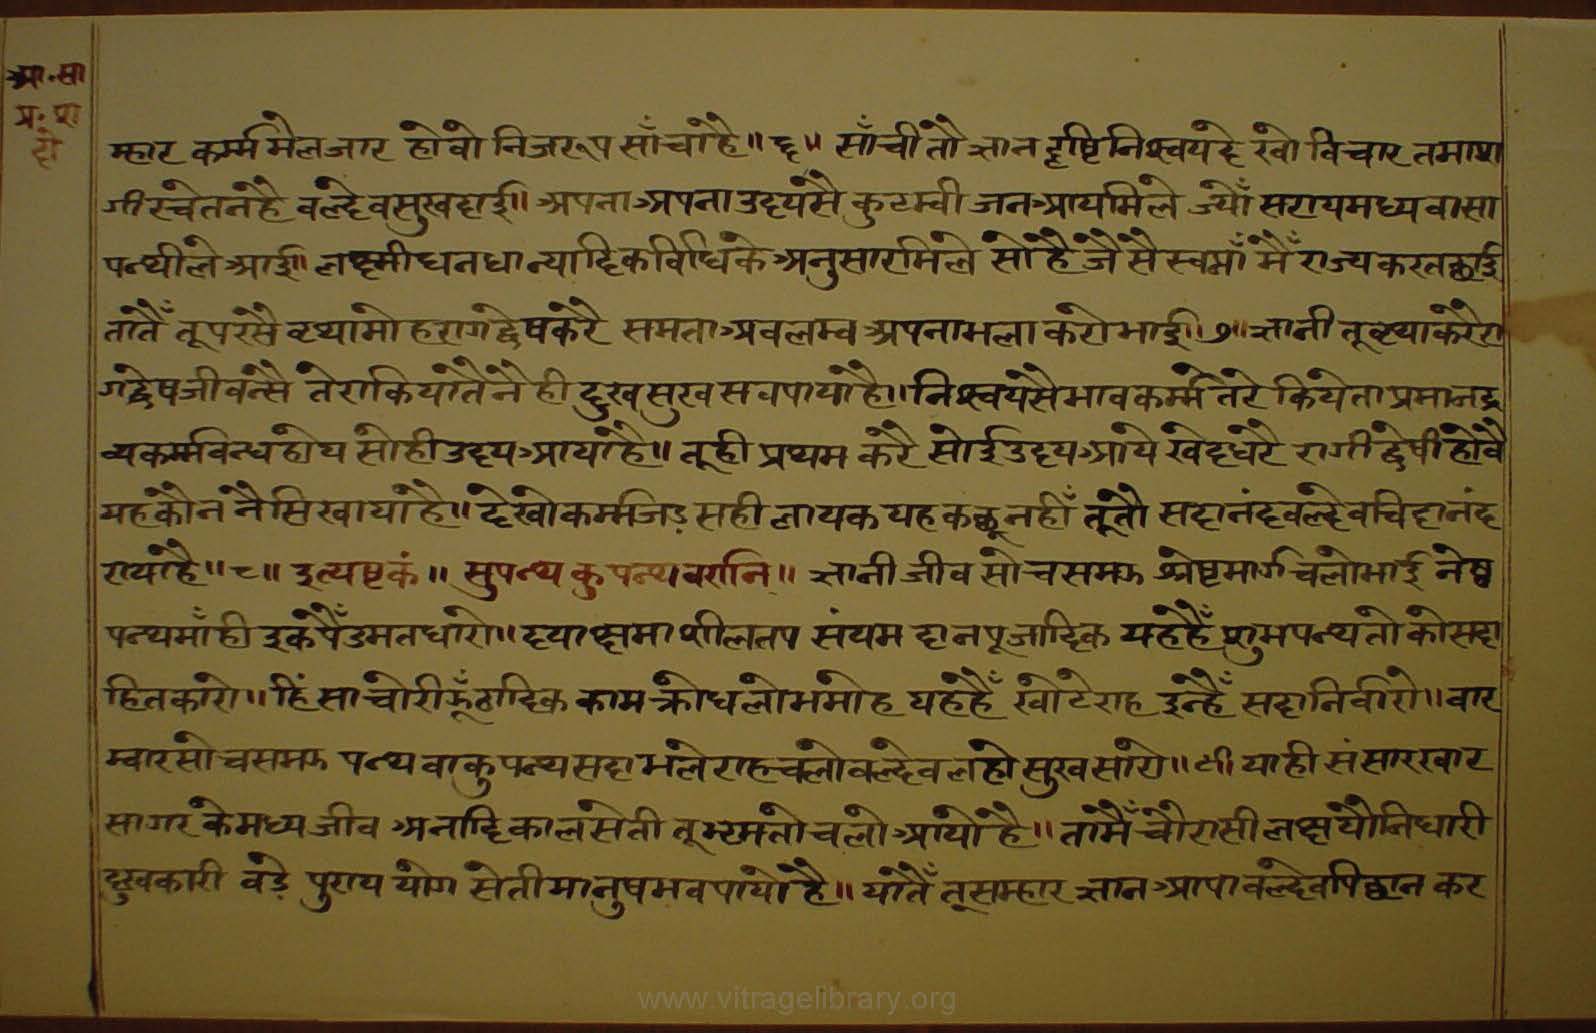 आ॰सा
प्र॰ था
म्हार कर्म्ममैलजार होवो निजरूप साँचोहै॥ ६॥ साँचीतौ ज्ञान दृष्टि निश्चयदे खो विचार तमाश
गीरचेतनहै वल्देवसुखदाई॥ अपना अपना उदयसै कुटम्वी जन आयमिले ज्यौँ सरायमध्य वासा
पन्थीले आई॥ लक्ष्मी धनधान्यादिकविधिके अनुसारमिले सोहै जैसै स्वप्नाँ मैँ राज्यकरतछाई
तातैँ तूपरसै व्यथामोहरागद्वेषकरै समता अवलम्व अपनाभला करोभाई॥ ७॥ ज्ञानी तूव्यथाकरेरा
गद्वेषजीवन्सै तेराकियातैनैही दुखसुख सवपायाहै॥ निश्चयसैभावकर्म्म तेरे कियेताप्रमानद्र
व्यकर्म्मवन्धहोय सोही उदय आयाहै॥ तूही प्रथम करै सोई उदय आये खेदधरै रागी द्वेषी होवै
यहकौन नै सिखायाहै॥ देखोकर्म्मजड़ सही लायक यहकछूनहीँ तूतौ सदानंदवल्देवचिदानंद
रायाहै॥ ८॥ इत्यष्टकं॥ सुपन्थ कुपन्थवरानि॥ ज्ञानी जीव सोचसमझ श्रेष्टमार्ग चलोभाई नेष्ट
पन्थमाँही इकपैँडमतधारो॥ दयाक्षमा शीलतप संयम दानपूजादिक यहहैँ शुभपन्थतो कोसदा
हितकारो॥ हिंसाचोरीझूँठादिक काम क्रोधलोभमोह यहहैँ खोटेराह इन्हैँ सदानिर्वारो॥ वार
म्वारसोचसमझ पन्थ वाकुपन्थसदा भलेराहचलोवल्देवलहो सुखसारो॥ ९॥ याही संसारखार
सागर केमध्य जीव अनादिकालसेती तूभ्रमतोचलो आयोहै॥ तामैँ चौरासी लक्षयौनिधारी
दुखकारी वड़े पुराय योग सेतीमानुषभवपायोहै॥ यातैँ तूसम्हार ज्ञान आपावल्देवपिछान कर
www.vitragelibrary.org